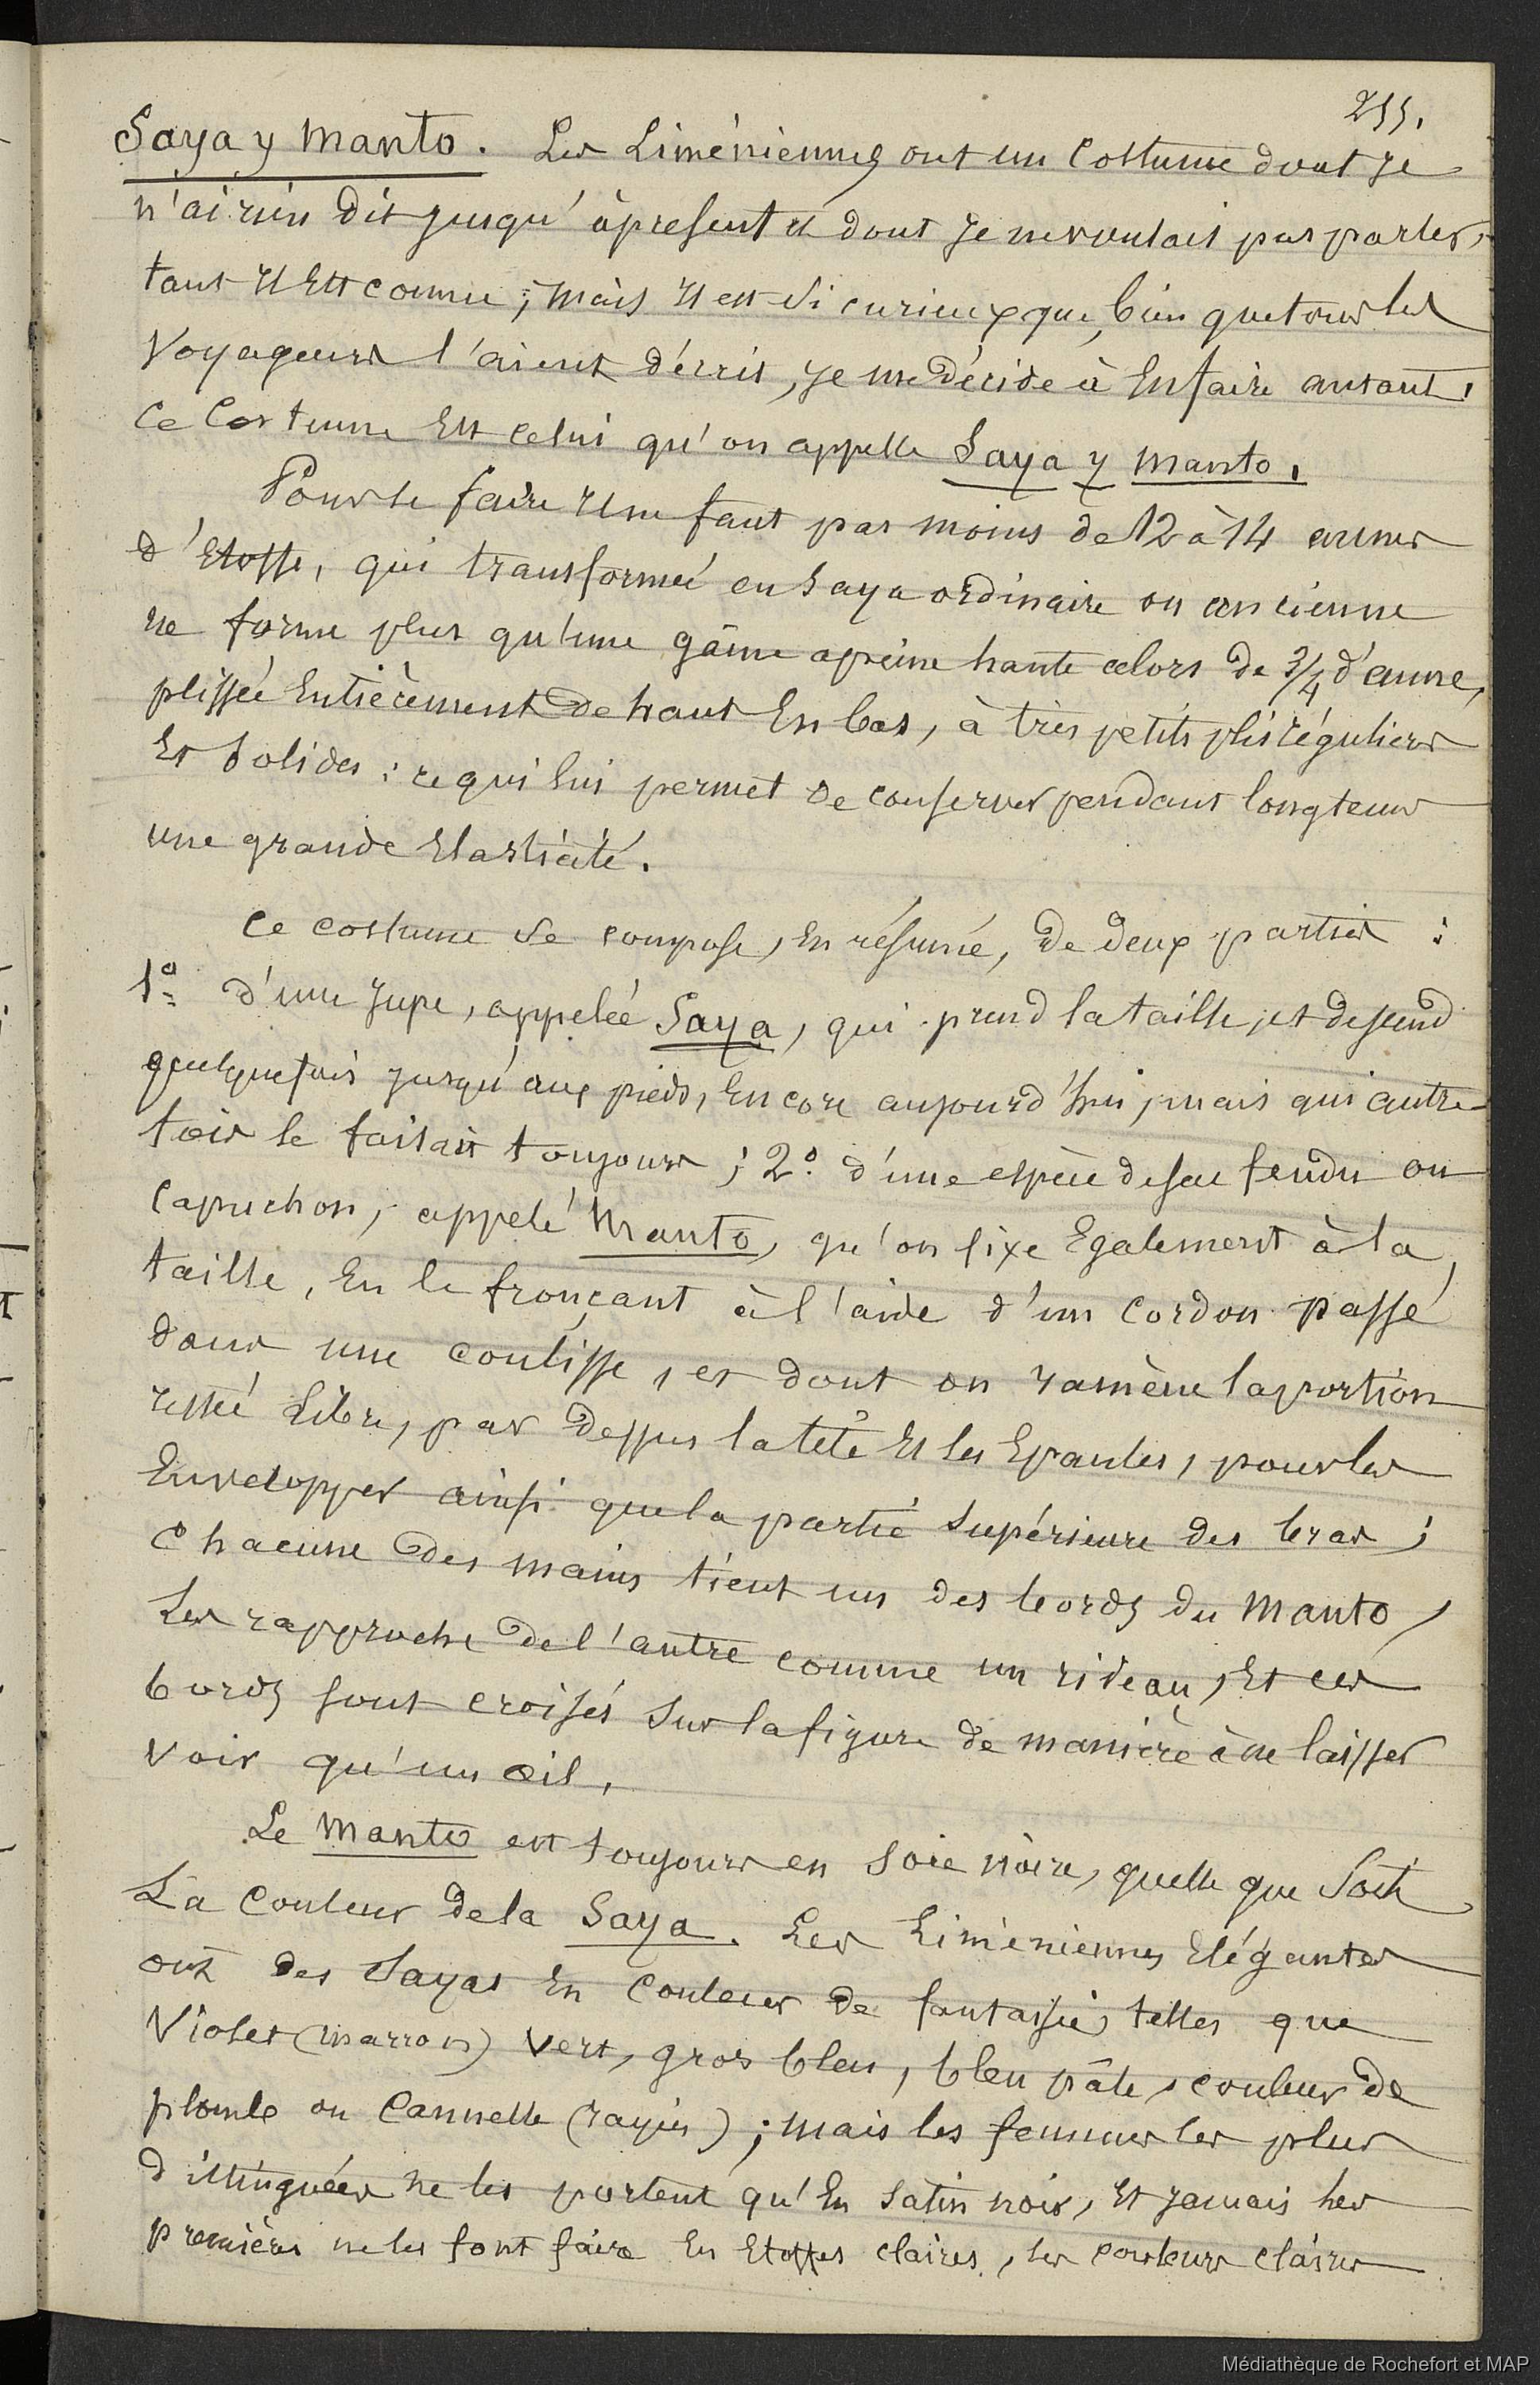 255.
Saya y manto. Les Liméniennes ont un costume dont je
n'ai rien dit jusqu'à présent et dont je ne voulais pas parler,
tant il est connu ; mais il est si curieux que, bien que tous les
voyageurs l'aient décrit, je me décide à En faire autant.
Ce Costume Est celui qu'on appelle Saya y manto.
Pour le faire il ne faut pas moins de 12 à 14 aunes
d'Etoffe, qui transformée en Saya ordinaire ou ancienne
ne forme plus qu'une gaîne apeine haute alors de 3/4 d'aune,
plissée Entièrement de haut En bas, à très petits plis réguliers
Et solides : ce qui lui permet de conserver pendant longtems
une grande Elasticité.
Ce costume se compose, En résumé, de deux parties :
1º d'une jupe, appelée Saya, qui prend la taille, et descend
quelquefois jusqu'aux pieds, Encore aujourd'hui, mais qui autre-
fois le faisait toujours ; 2º d'une espèce de sac fendu ou
Capuchon, appelé Manto, qu'on fixe Egalement à la
taille, En le fronçant à l'aide d'un Cordon passé
dans une coulisse, et dont on ramène la portion
restée Libre, par dessus la tête Et les Epaules, pour les
Envelopper ainsi que la partie supérieure des bras ;
Chacune des mains tient un des bords du Manto,
Les rapproche de l'autre comme un rideau, Et ces
bords sont croisés sur la figure de manière à ne laisser
voir qu'un œil.
Le manto est toujours en soie noire, quelle que soit
La Couleur de la Saya. Les Liméniennes Elégantes
ont des Sayas En Couleur de fantaisie, telles que
Violet (marron) vert, gros bleu, bleu pâle, couleur de
plomb ou Cannelle (rayés) ; mais les femmes les plus
distinguées ne les portent qu'En satin noir, Et jamais les
premières ne les font faire En Etoffes claires, les couleurs claires
Médiathèque de Rochefort et MAP